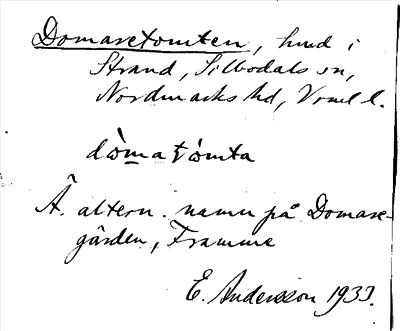 Domaretomten, hmd i
Strand, Silbodals sn,
Nordmarks hd, Vrml l.
dòmatòmta
Ä. altern. namn på Domare-
gården, Framme
E. Andersson 1933.